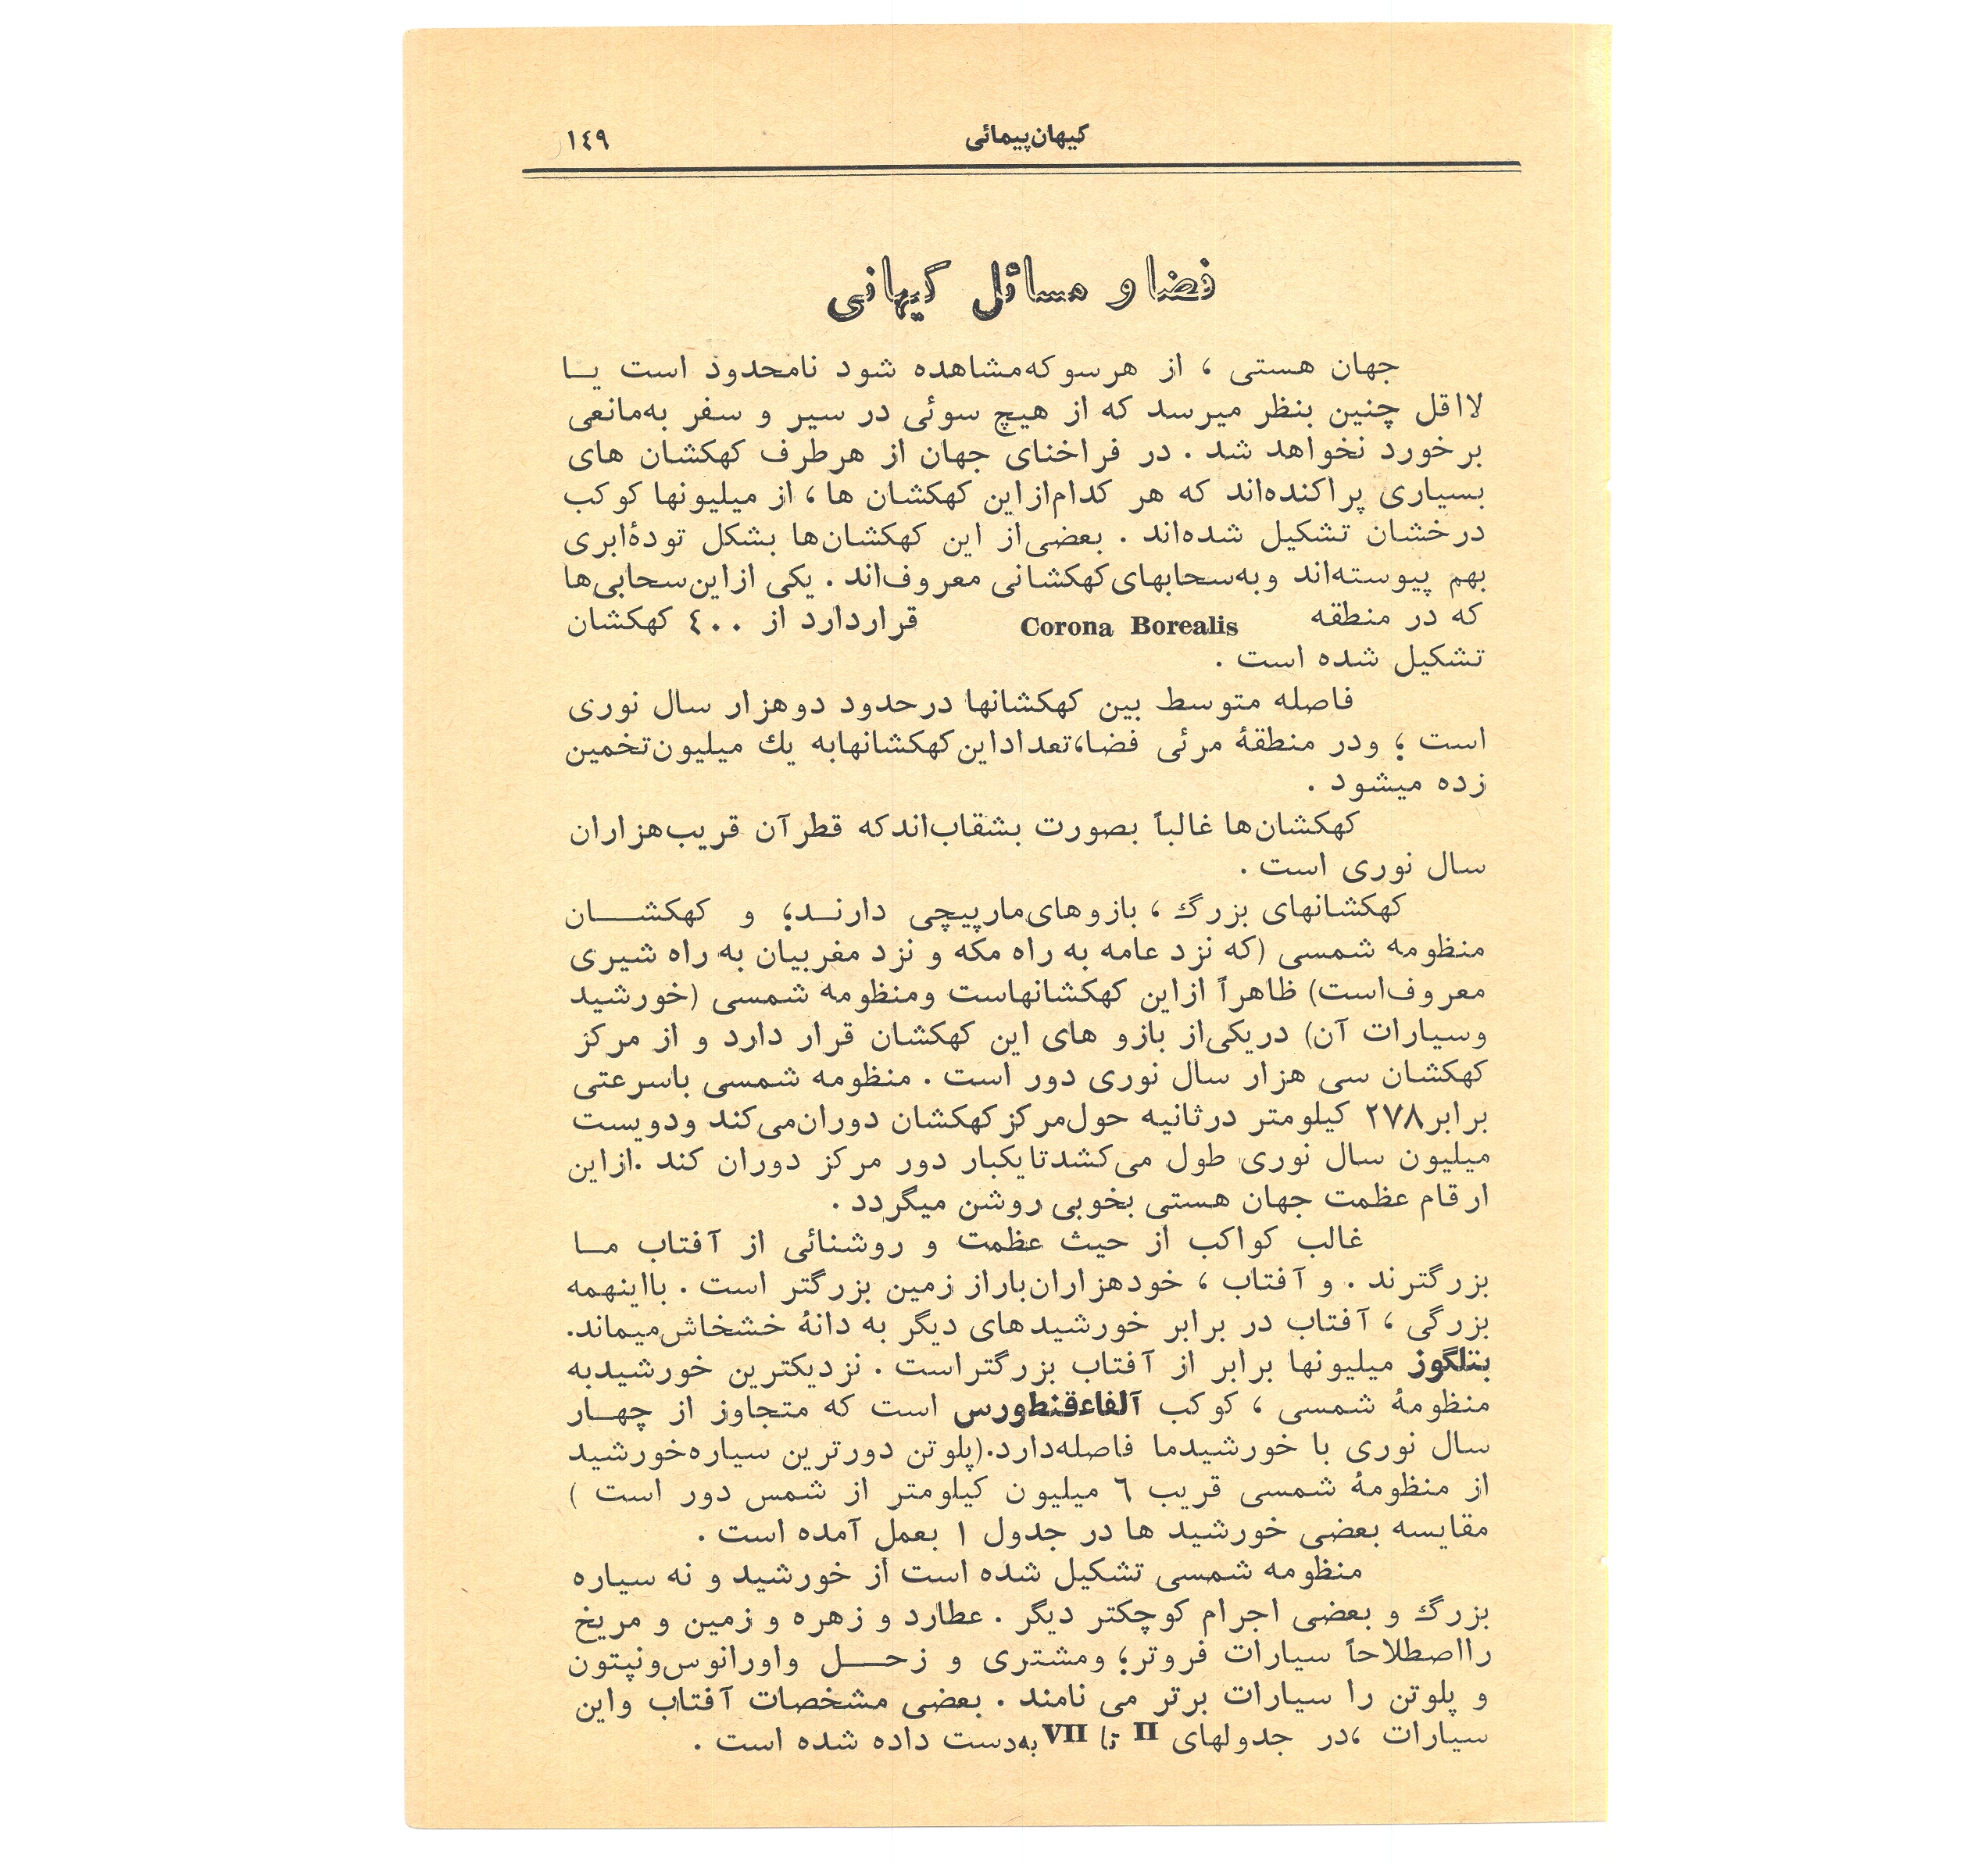 کیهان‌پیمائی
١٤٩
فضا و مسائل کیهانی
جهان هستی ، از هرسو که‌مشاهده شود نامحدود است یـا
لااقل چنین بنظر میرسد که از هیچ سوئی در سیر و سفر به‌مانعی
برخورد نخواهد شد . در فراخنای جهان از هرطرف کهکشان های
بسیاری پراکنده‌اند که هر کدام‌ازاین کهکشان ها ، از میلیونها کوکب
درخشان تشکیل شده‌اند . بعضی‌از این کهکشان‌ها بشکل تودۀ‌ابری
بهم پیوسته‌اند و به‌سحابهای کهکشانی معروف‌اند . یکی ازاین‌سحابی‌ها
که در منطقه Corona Borealis قراردارد از ٤٠٠ کهکشان
تشکیل شده است .
فاصله متوسط بین کهکشانها درحدود دوهزار سال نوری
است ؛ ودر منطقۀ مرئی فضا،تعداداین‌کهکشانهابه یك میلیون‌تخمین
زده میشود .
کهکشان‌ها غالباً بصورت بشقاب‌اندکه قطرآن قریب‌هزاران
سال نوری است .
کهکشانهای بزرگ ، بازوهای‌مارپیچی دارنـد؛ و کهکشــان
منظومه شمسی (که نزد عامه به راه مکه و نزد مغربیان به راه شیری
معروف‌است) ظاهراً ازاین کهکشانهاست ومنظومه شمسی (خورشید
وسیارات آن) دریکی‌از بازو های این کهکشان قرار دارد و از مرکز
کهکشان سی هزار سال نوری دور است . منظومه شمسی باسرعتی
برابر۲۷۸ کیلومتر درثانیه حول‌مرکز کهکشان دوران‌می‌کند ودویست
میلیون سال نوری طول می‌کشدتایکبار دور مرکز دوران کند .ازاین
ارقام عظمت جهان هستی بخوبی روشن میگردد .
غالب کواکب از حیث عظمت و روشنائی از آفتاب مـا
بزرگترند . و آفتاب ، خودهزاران‌باراز زمین بزرگتر است . بااینهمه
بزرگی ، آفتاب در برابر خورشیدهای دیگر به دانۀ خشخاش‌میماند.
بتلگوز میلیونها برابر از آفتاب بزرگتراست . نزدیکترین خورشیدبه
منظومۀ شمسی ، کوکب آلفاءقنطورس است که متجاوز از چهـار
سال نوری با خورشیدما فاصله‌دارد.(پلوتن دورترین سیاره‌خورشید
از منظومۀ شمسی قریب ٦ میلیون کیلومتر از شمس دور است )
مقایسه بعضی خورشید ها در جدول ١ بعمل آمده است .
منظومه شمسی تشکیل شده است از خورشید و نه سیاره
بزرگ و بعضی اجرام کوچکتر دیگر . عطارد و زهره و زمین و مریخ
رااصطلاحاً سیارات فروتر؛ ومشتری و زحــل واورانوس‌ونپتون
و پلوتن را سیارات برتر می نامند . بعضی مشخصات آفتاب واین
سیارات ،در جدولهای II تا VII به‌دست داده شده است .